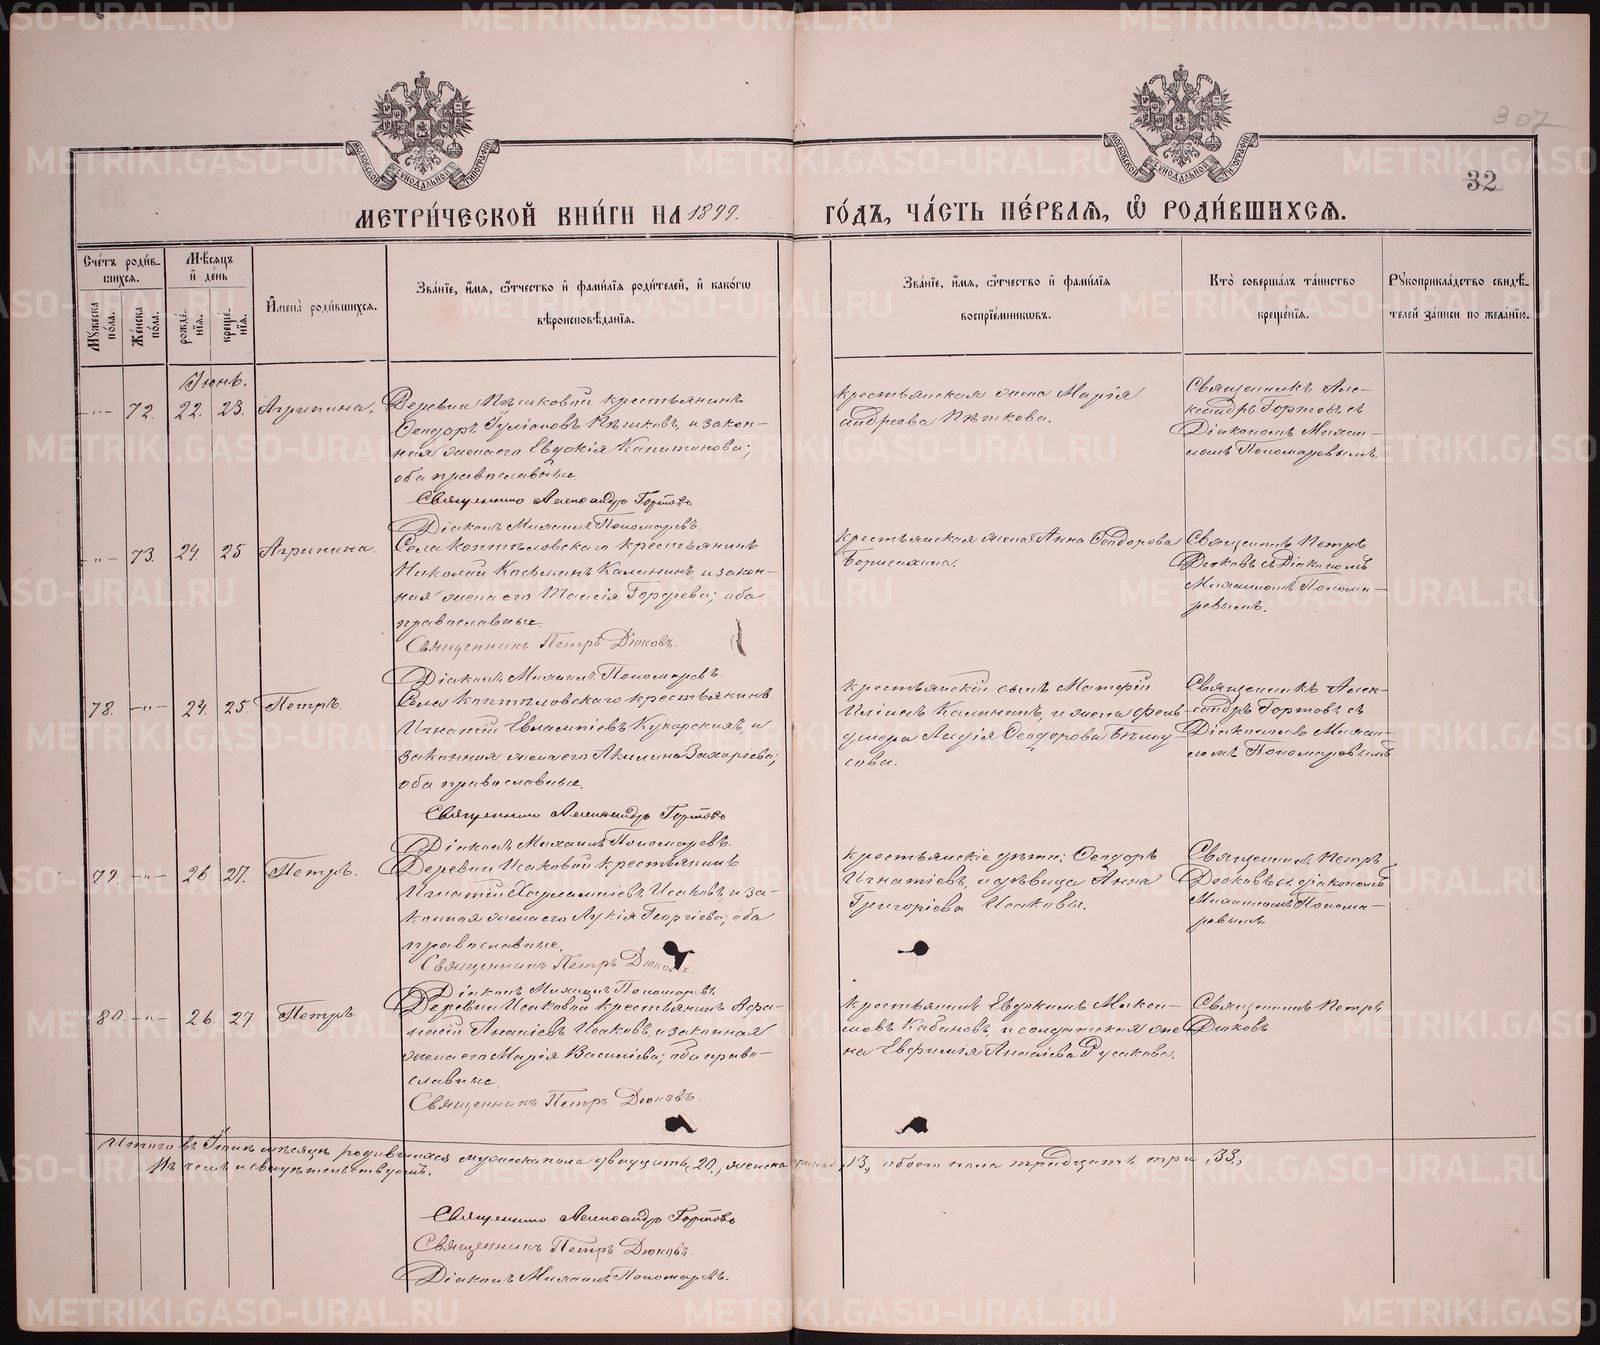 307
32
МОСКОВСКОЙ СѴНОДАЛЬНОЙ ТИПОГРАФІИ
МОСКОВСКОЙ СѴНОДАЛЬНОЙ ТИПОГРАФІИ
МЕТРИ́ЧЕСКОЙ КНИ́ГИ НА 1899.
ГО́ДЪ, ЧА́СТЬ ПЕ́РВАЯ, Ѽ РОДИ́ВШИХСЯ.
Сче́тъ роди́в-
шихся.
Мꙋ́жеска по́ла.
Же́нска по́ла.
Мѣ́сяцъ
и҆ де́нь
рожде́-
нїя.
креще́-
нїя.
И҆мена̀ роди́вшихся.
Зва́нїе, и҆́мя, ѻ҆́тчество и҆ фами́лїя роди́телей, и҆ како́гѡ
вѣроисповѣ́данїя.
Зва́нїе, и҆́мя, ѻ҆́тчество и҆ фами́лїя
воспрїе́мниковъ.
Кто̀ соверша́лъ та́инство
креще́нїя.
Рꙋкоприкла́дство свидѣ́-
телей за́писи по жела́нїю.
Іюнь.
-"- 72. 22. 23. Агрипина.
Деревни Пѣшковой крестьянинъ
Ѳеодоръ Іуліановъ Пѣшковъ, и закон-
ная жена его Евдокія Капитонова;
оба православные.
Священникъ Александръ Гортовъ
Діаконъ Михаилъ Пономаревъ.
крестьянская жена Марія
Андреева Пѣшкова.
Священникъ Але-
ксандръ Гортовъ съ
Діакономъ Михаи-
ломъ Пономаревымъ.
-"- 73. 24. 25 Агрипина.
Села Коптѣловскаго крестьянинъ
Николай Косьминъ Калининъ, и закон-
ная жена его Таисія Гордіева; оба
православные.
Священникъ Петръ Дюковъ.
Діаконъ Михаилъ Пономаревъ.
крестьянская жена Анна Ѳеодорова
Борисихина.
Священникъ Петръ
Дюковъ съ Діакономъ
Михаиломъ Понома-
ревымъ.
78. -"- 24. 25. Петръ.
Села Коптѣловскаго крестьянинъ
Игнатій Евлампіевъ Кукарскихъ, и
законная жена его Акилина Захаріева;
оба православные.
Священникъ Александръ Гортовъ
Діаконъ Михаилъ Пономаревъ.
крестьянскій сынъ Матѳій
Иліинъ Калининъ, и жена фель-
дшера Лидія Ѳеодорова
Священникъ Алек-
сандръ Гортовъ съ
Діакономъ Михаи-
ломъ Пономаревымъ.
79. -"- 26 27. Петръ.
Деревни Исаковой крестьянинъ
Игнатій Харлампіевъ Исаковъ, и за-
конная жена его Лукія Георгіева; оба
православные.
Священникъ Петръ Дюковъ.
Діаконъ Михаилъ Пономаревъ.
крестьянскіе дѣти: Ѳеодоръ
Игнатіевъ, и дѣвица Анна
Григоріева Исаковы.
Священникъ Петръ
Дюковъ съ діакономъ
Михаиломъ Понома-
ревымъ.
80. -"- 26. 27 Петръ
Деревни Исаковой крестьянинъ Аѳа-
насій Ананіевъ Исаковъ, и законная
жена его Марія Василіева; оба право-
славные.
Священникъ Петръ Дюковъ.
крестьянинъ Евдокимъ Макси-
мовъ Кабановъ, и солдатская же-
на Евфимія Ананіева Русакова.
Священникъ Петръ
Дюковъ
Итого въ Іюнѣ мѣсяцѣ родившихся мужеска пола двадцать (20), женска 13, обоего пола тридцать три, 33,
Въ чемъ и свидѣтельствуемъ.
Священникъ Александръ Гортовъ
Священникъ Петръ Дюковъ.
Діаконъ Михаилъ Пономаревъ.
METRIKI.GASO-URAL.RU